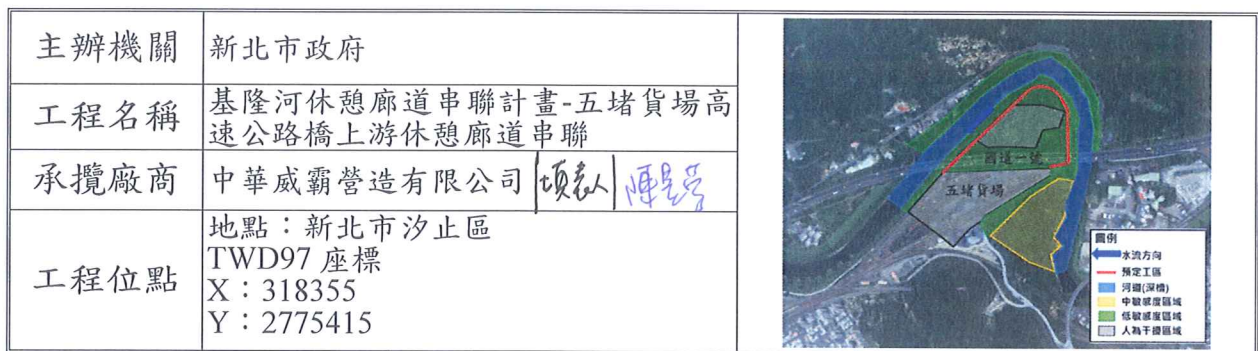 主辦機關
新北市政府
工程名稱
基隆河休憩廊道串聯計畫-五堵貨場高
速公路橋上游休憩廊道串聯
承攬廠商
中華威霸營造有限公司
工程位點
地點：新北市汐止區
TWD97 座標
X：318355
Y：2775415
國道一號
五堵貨場
圖例
水流方向
預定工區
河道(深槽)
中敏感度區域
低敏感度區域
人為干擾區域